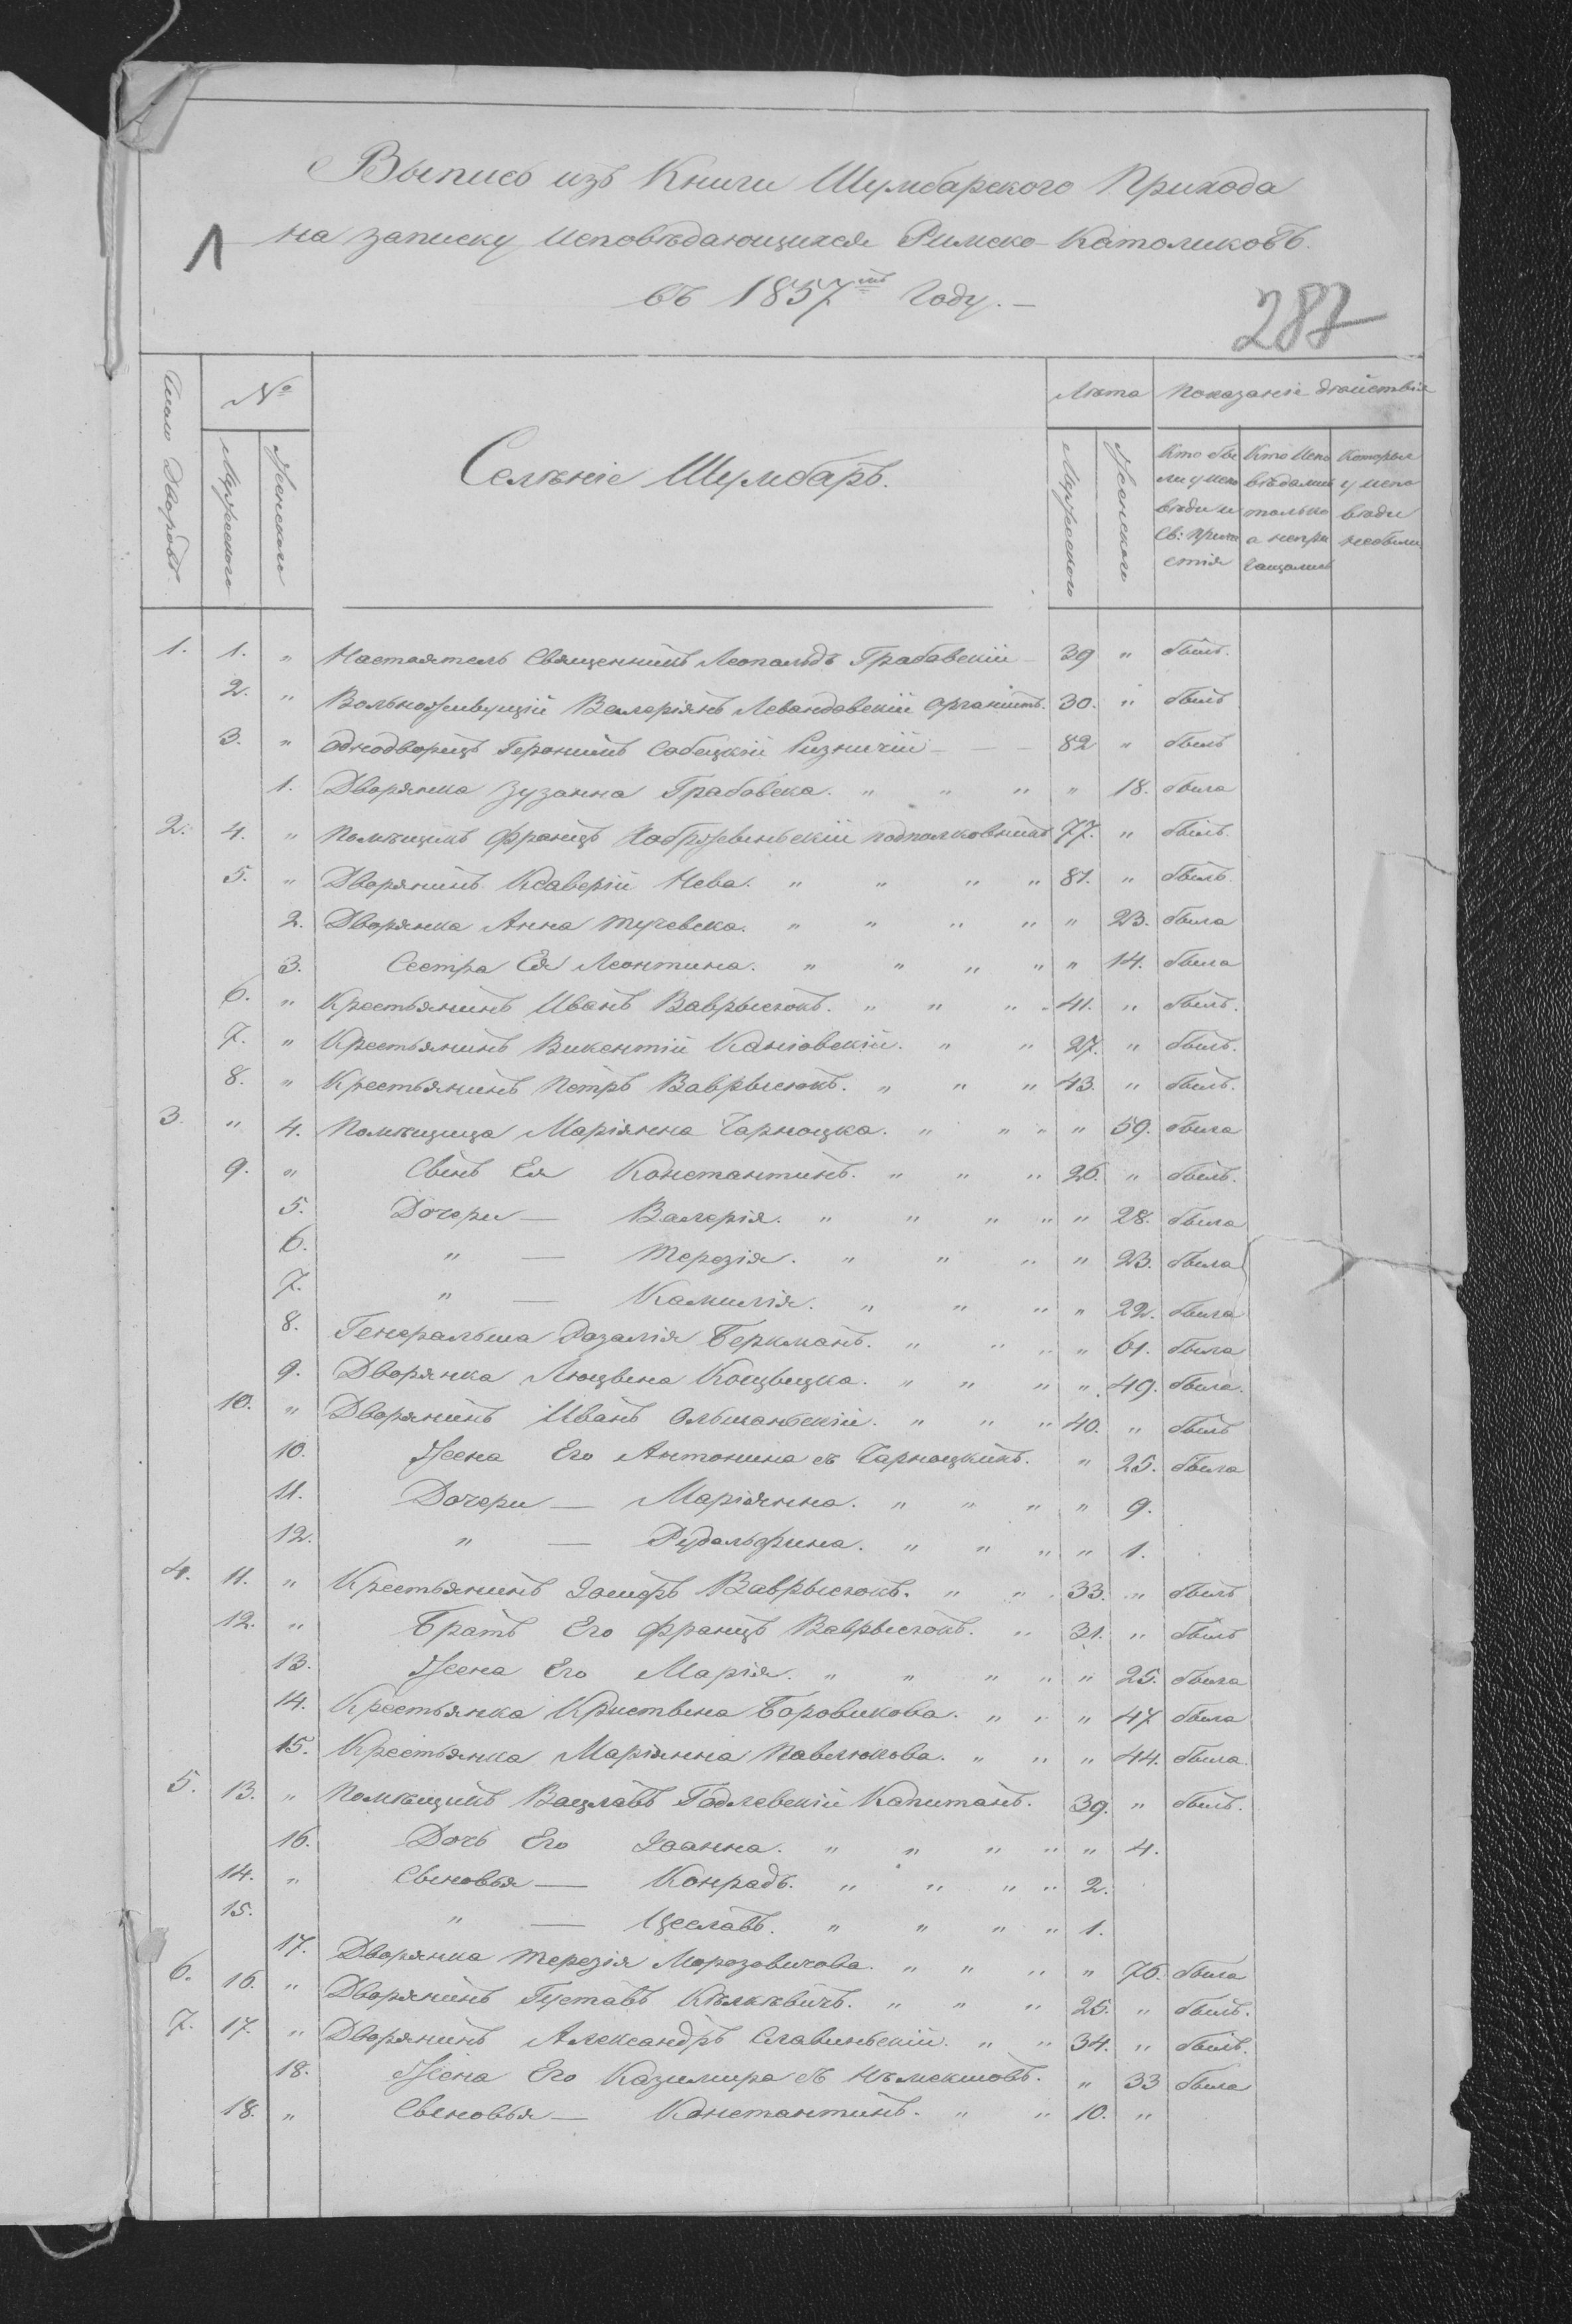 Выпись изъ Книги Шумбарского Прихода
на записку Исповѣдающихся Римско-Католиковъ.
въ 1857мъ Году.—
1
287
Число Дворовъ.
№
Мужеского
Женского
Селѣніе Шумбаръ.
Лѣта
Мужеского
Женского
Показаніе дѣйствія
Кто бы
ли у испо
вѣди и
Св: прича
стія
Кто Испо
вѣдались
только
а непри
чащались
Которые
у испо
вѣди
небыли
1. 1. " Настоятель Священникъ Леопольдъ Грабовскій — 39 " былъ.
2. " Вольноживущій Валеріянъ Левандовскій Органистъ. 30. " былъ
3. " Однодворецъ Геронимъ Собецкій Ризничій — — — 82 " былъ
1. Дворянка Зузанна Грабовска. " " " " 18. была
2. 4. " Помѣщикъ Францъ подполковникъ 77. " былъ.
5. " Дворянинъ Ксаверій Нева. " " " " 81. " былъ.
2. Дворянка Анна Тучевска. " " " " " 23. была
3. Сестра Ея Леонтина. " " " " " 14. была
6. " Крестьянинъ Иванъ Ваврысюкъ. " " " 41. " былъ.
7. " Крестьянинъ Викентій Канiовскій. " " 27. " былъ.
8. " Крестьянинъ Петръ Ваврысюкъ. " " " 43. " былъ.
3. " 4. Помѣщица Маріянна Чарноцка. " " " " 59. была
9. " Сынъ Ея Константинъ. " " " 26. " былъ.
5. Дочери — Валерія. " " " " " 28. была
6. " — Терезія. " " " " 23. была
7. " — Камилія. " " " " 22. была
8. Генеральша Розалія Беркманъ. " " " " 61. была
9. Дворянка Люцвина " " " " 49. была.
10. " Дворянинъ Иванъ Ольшаньскій. " " " 40. " былъ
10. Жена Его Антонина съ Чарноцкихъ. " 25. была
11. Дочери — Маріянна. " " " " 9.
12. " — Рудольфина. " " " " 1.
4. 11. " Крестьянинъ Іосифъ Ваврысюкъ. " " 33. " былъ
12. " Братъ Его Францъ Ваврысюкъ. " 31. " былъ
13. Жена Его Марія. " " " " " 25. была
14. Крестьянка Криствина Боровикова. " " " 47 была
15. Крестьянка Маріянна Павлюкова. " " " 44. была.
5. 13. " Помѣщикъ Вацлавъ Годлевскій Капитанъ. 39. " былъ.
16. Дочь Его Іоанна. " " " " " 4.
14. " Сыновья — Конрадъ. " " " " 2.
15. " — Цеславъ. " " " " 1.
17. Дворянка Терезія Морозовичова. " " " " 76. была
6. 16. " Дворянинъ Густавъ Кѣлкѣвичъ. " " " 25. " былъ.
7. 17. " Дворянинъ Александръ Славиньскій. " " 34. " былъ.
18. Жена Его Казимира съ " 33 была
18. " Сыновья — Константинъ. " " 10. "